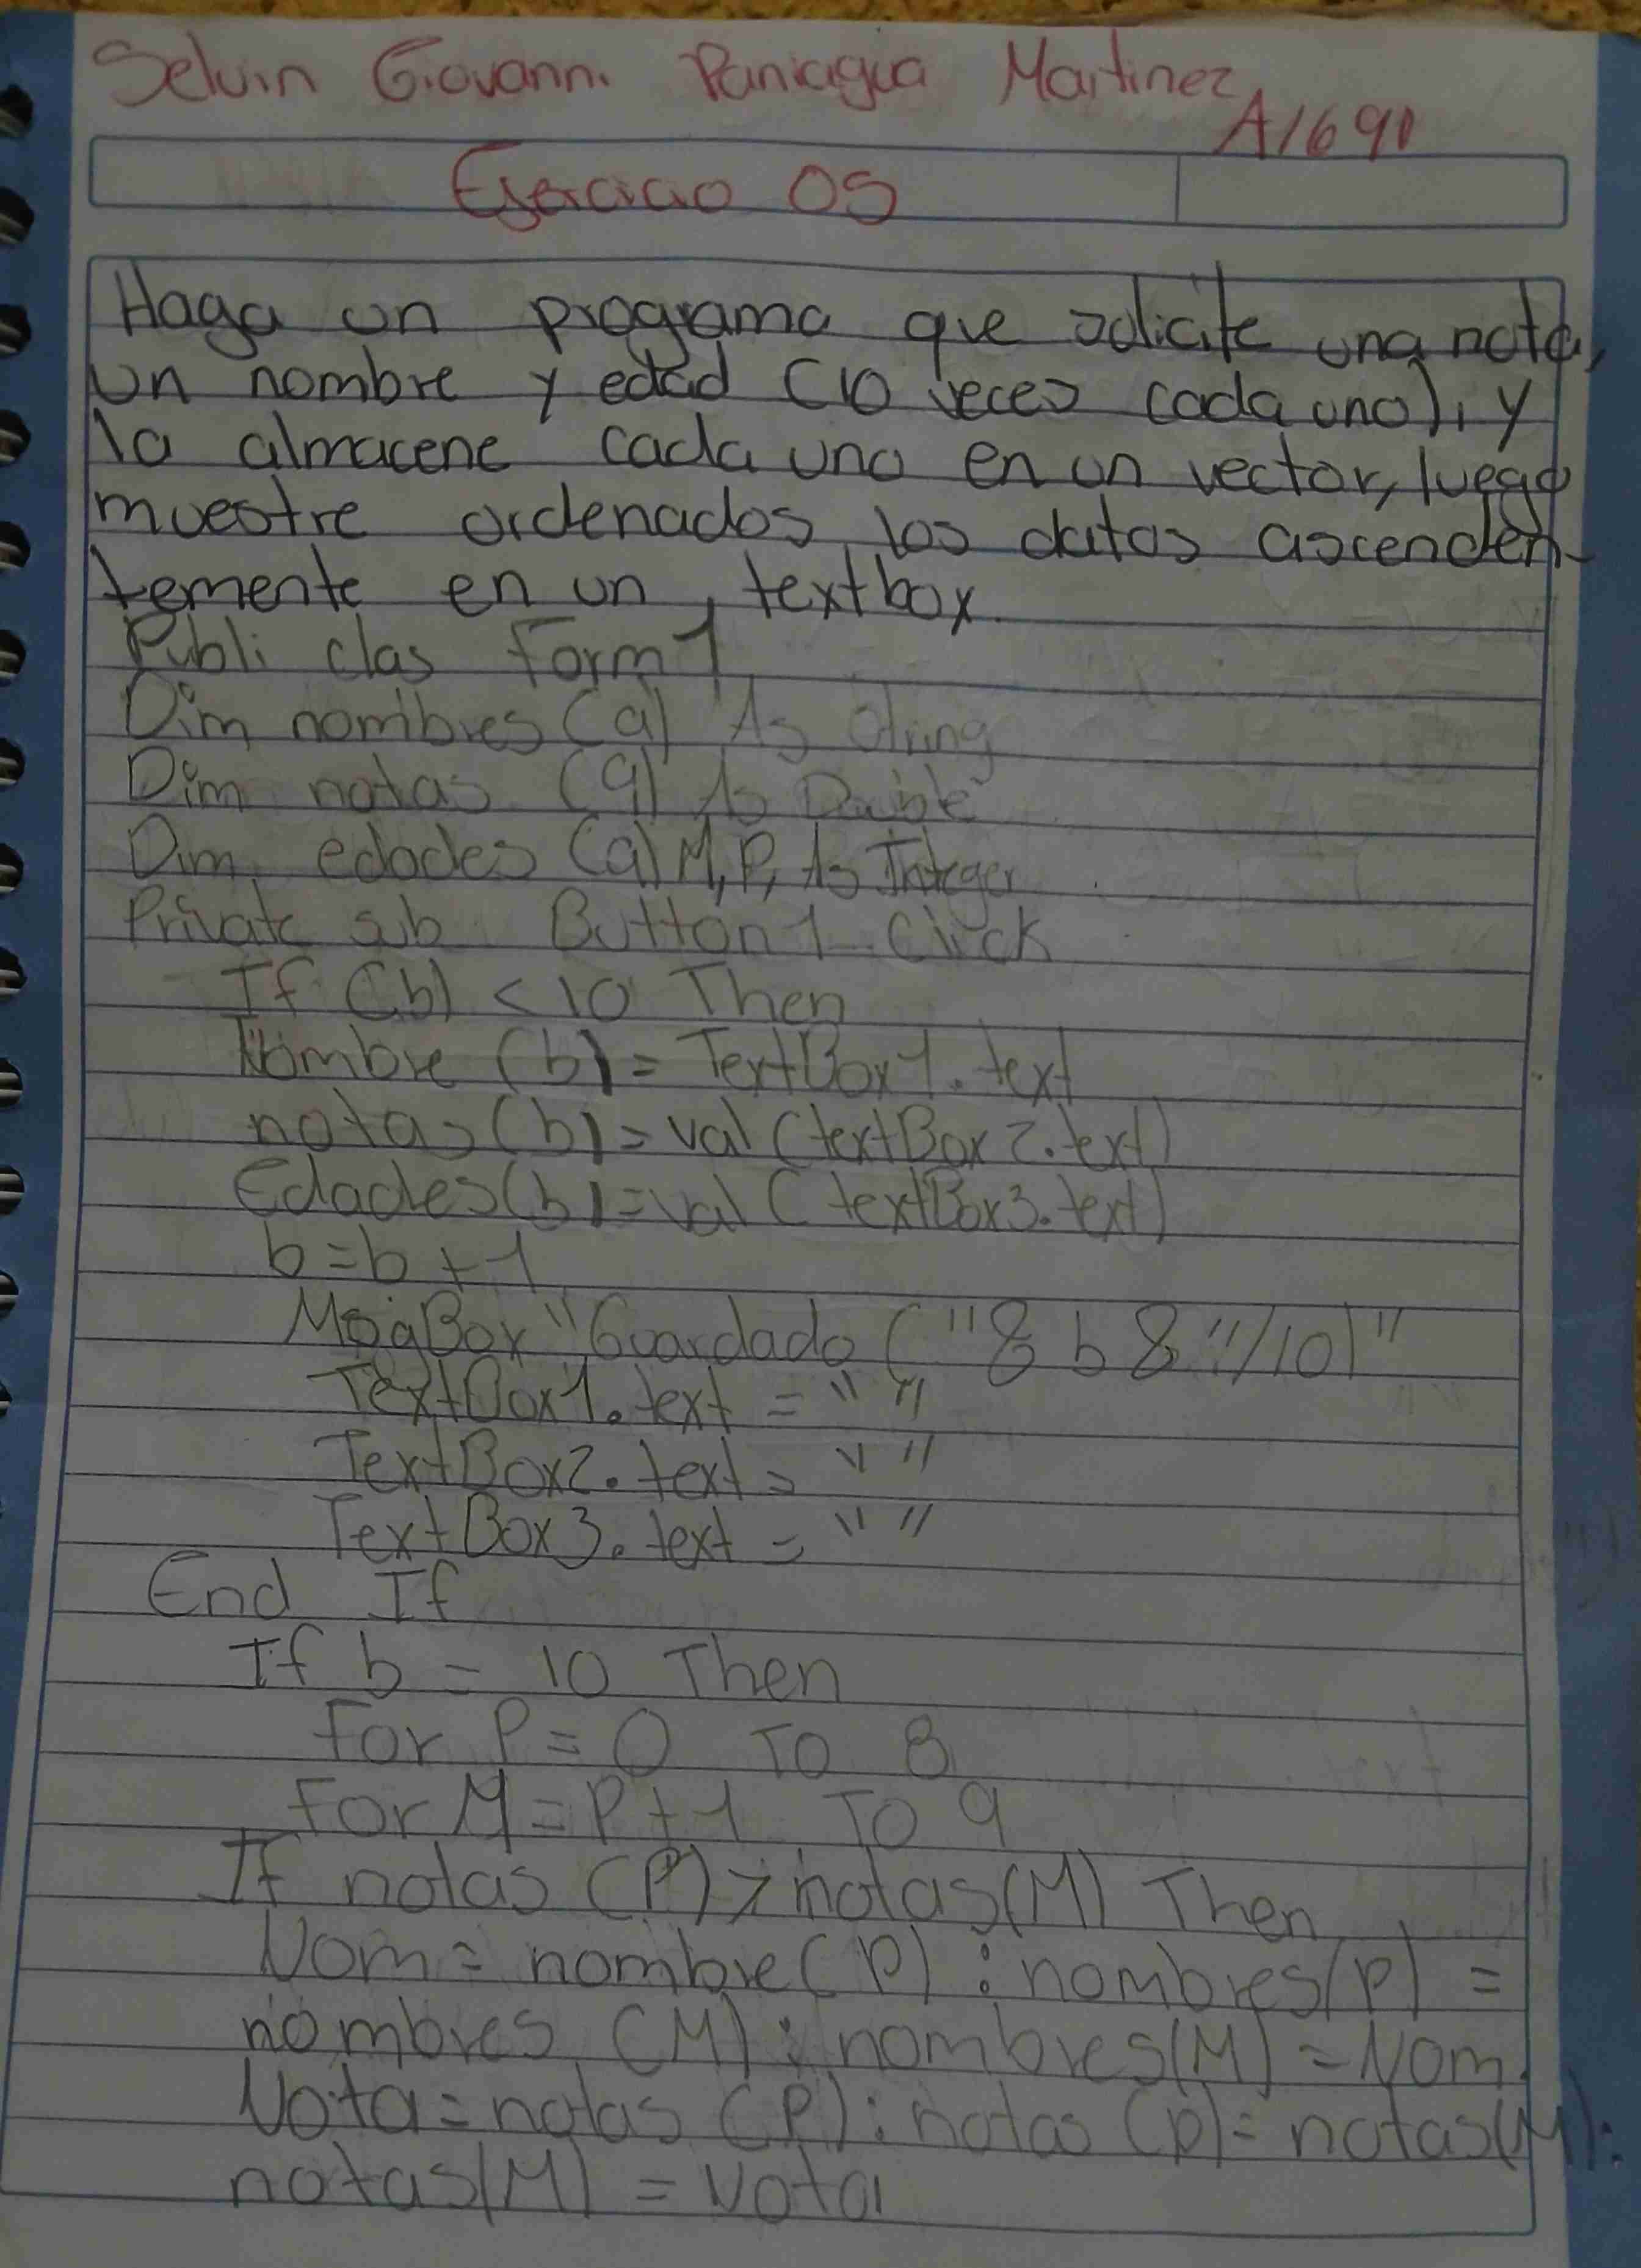 Selvin Giovanni Paniagua Martinez
A1691
Ejercicio 05
Haga un programa que solicite una nota,
un nombre y edad (10 veces cada uno), y
la almacene cada uno en un vector, luego
muestre ordenados los datos ascenden-
temente en un textbox.
Publi clas Form1
Dim nombres (9) As String
Dim notas (9) As Double
Dim edades (9) M, P, As Integer
Private sub Button1_Click
If (b) < 10 Then
Nombre (b) = TextBox1.text
notas (b) = val (textBox2.text)
Edades (b) = val (textBox3.text)
b = b + 1
MsgBox "Guardado (" & b & "/10)"
TextBox1.text = " "
TextBox2.text = " "
TextBox3.text = " "
End If
If b = 10 Then
For P = 0 To 8
For M = P + 1 To 9
If notas (P) > notas (M) Then
Nom = nombre (P) : nombres (P) =
nombres (M) : nombres (M) = Nom.
Nota = notas (P) : notas (P) = notas (M) :
notas (M) = Nota